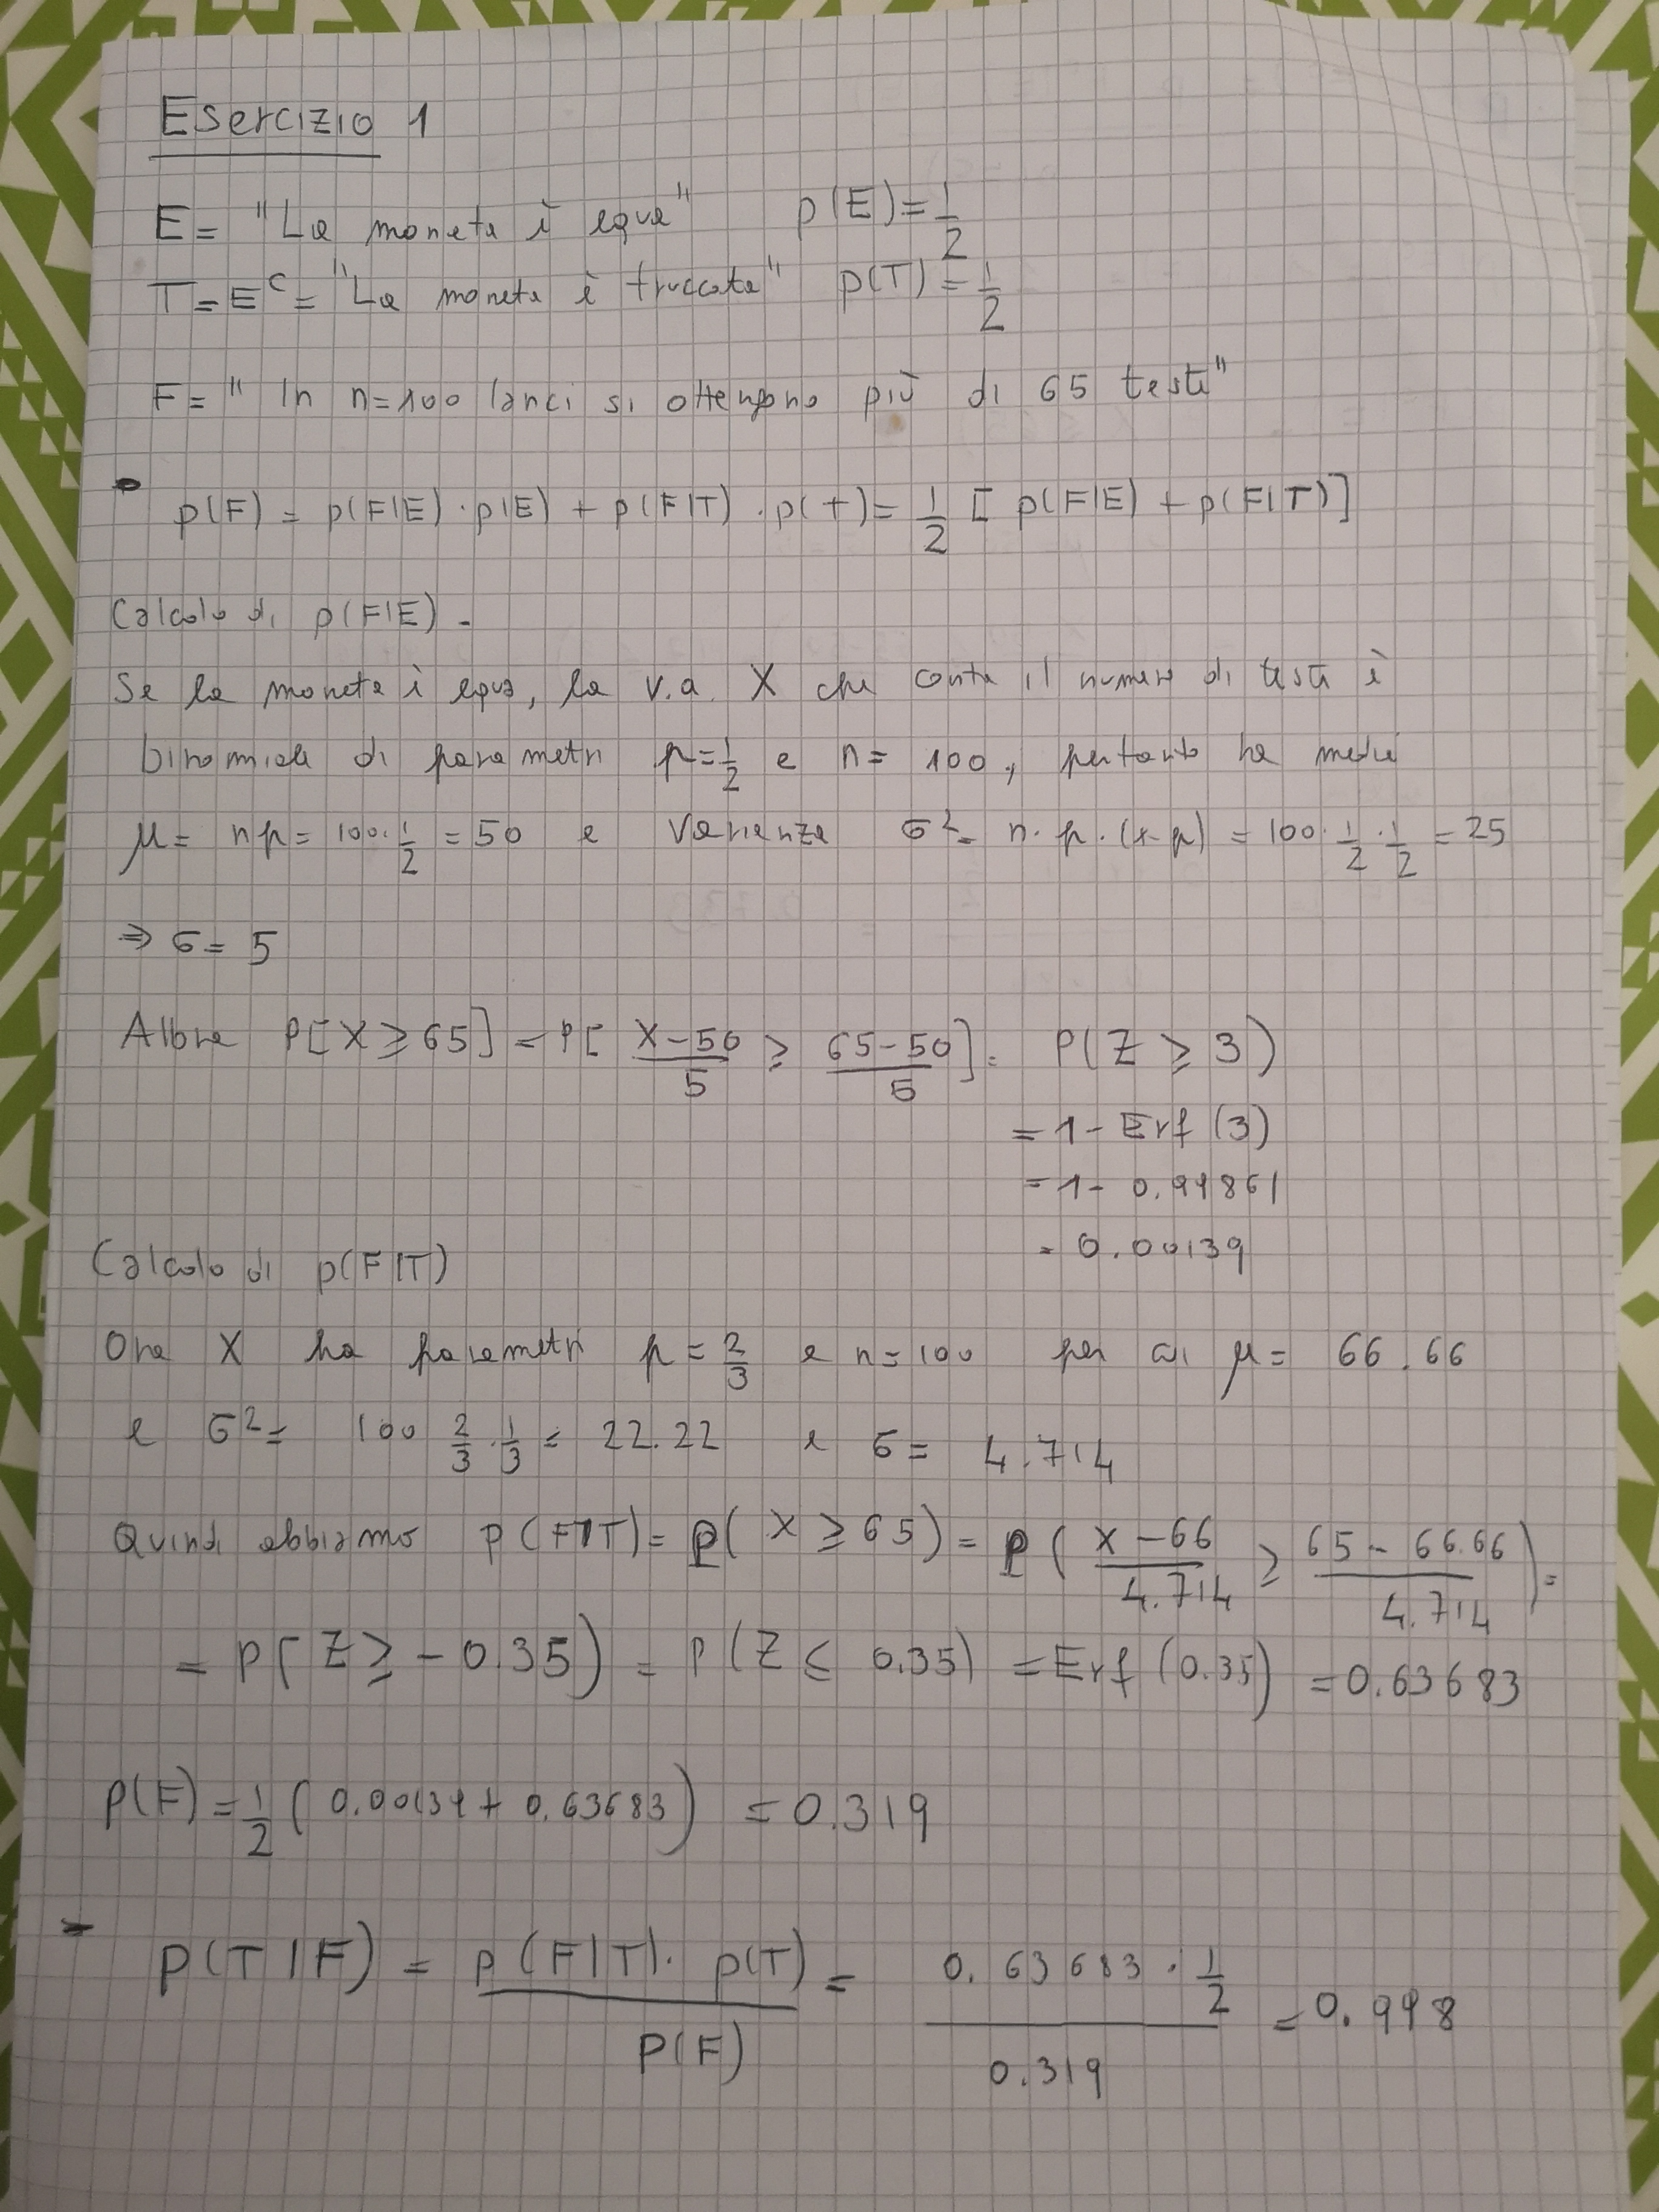 Esercizio 1
E = "La moneta è equa" p(E) = 1/2
T = E^c = "La moneta è truccata" p(T) = 1/2
F = " In n=100 lanci si ottengono più di 65 teste"
- p(F) = p(F|E) · p(E) + p(F|T) · p(T) = 1/2 [ p(F|E) + p(F|T)]
Calcolo di p(F|E) -
Se la moneta è equa, la v.a. X che conta il numero di teste è
binomiale di parametri p=1/2 e n= 100, pertanto ha media
μ= np= 100·1/2 = 50 e varianza σ²= n·p·(1-p) = 100·1/2·1/2 = 25
⇒ σ= 5
Allora P[X≥65] = P[ (X-50)/5 ≥ (65-50)/5 ] = P(Z ≥ 3)
= 1- Erf (3)
= 1- 0.99861
= 0.00139
Calcolo di p(F|T)
Ora X ha parametri p = 2/3 e n=100 per cui μ= 66.66
e σ²= 100 2/3 · 1/3 = 22.22 e σ= 4.714
Quindi abbiamo p(F|T) = P( X ≥ 65) = P( (X-66)/4.714 ≥ (65-66.66)/4.714 ) =
= P[ Z ≥ -0.35) = P(Z ≤ 0.35) = Erf (0.35) = 0.63683
P(F) = 1/2 ( 0.00139 + 0.63683) = 0.319
- P(T|F) = p(F|T)· p(T) / P(F) = 0.63683 · 1/2 / 0.319 = 0.998